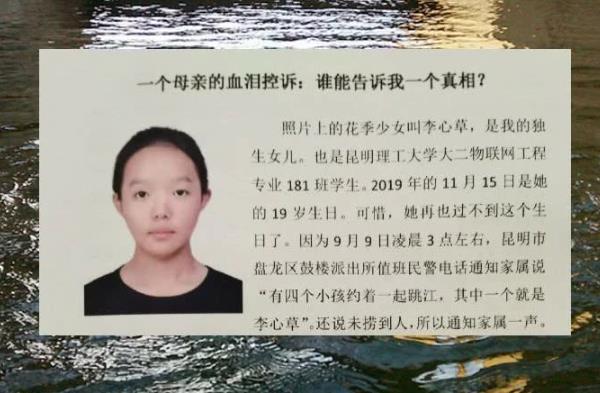 一个母亲的血泪控诉：谁能告诉我一个真相？
照片上的花季少女叫李心草，是我的独
生女儿。也是昆明理工大学大二物联网工程
专业 181 班学生。2019 年的 11 月 15 日是她
的 19 岁生日。可惜，她再也过不到这个生
日了。因为 9 月 9 日凌晨 3 点左右，昆明市
盘龙区鼓楼派出所值班民警电话通知家属说
“有四个小孩约着一起跳江，其中一个就是
李心草”。还说未捞到人，所以通知家属一声。